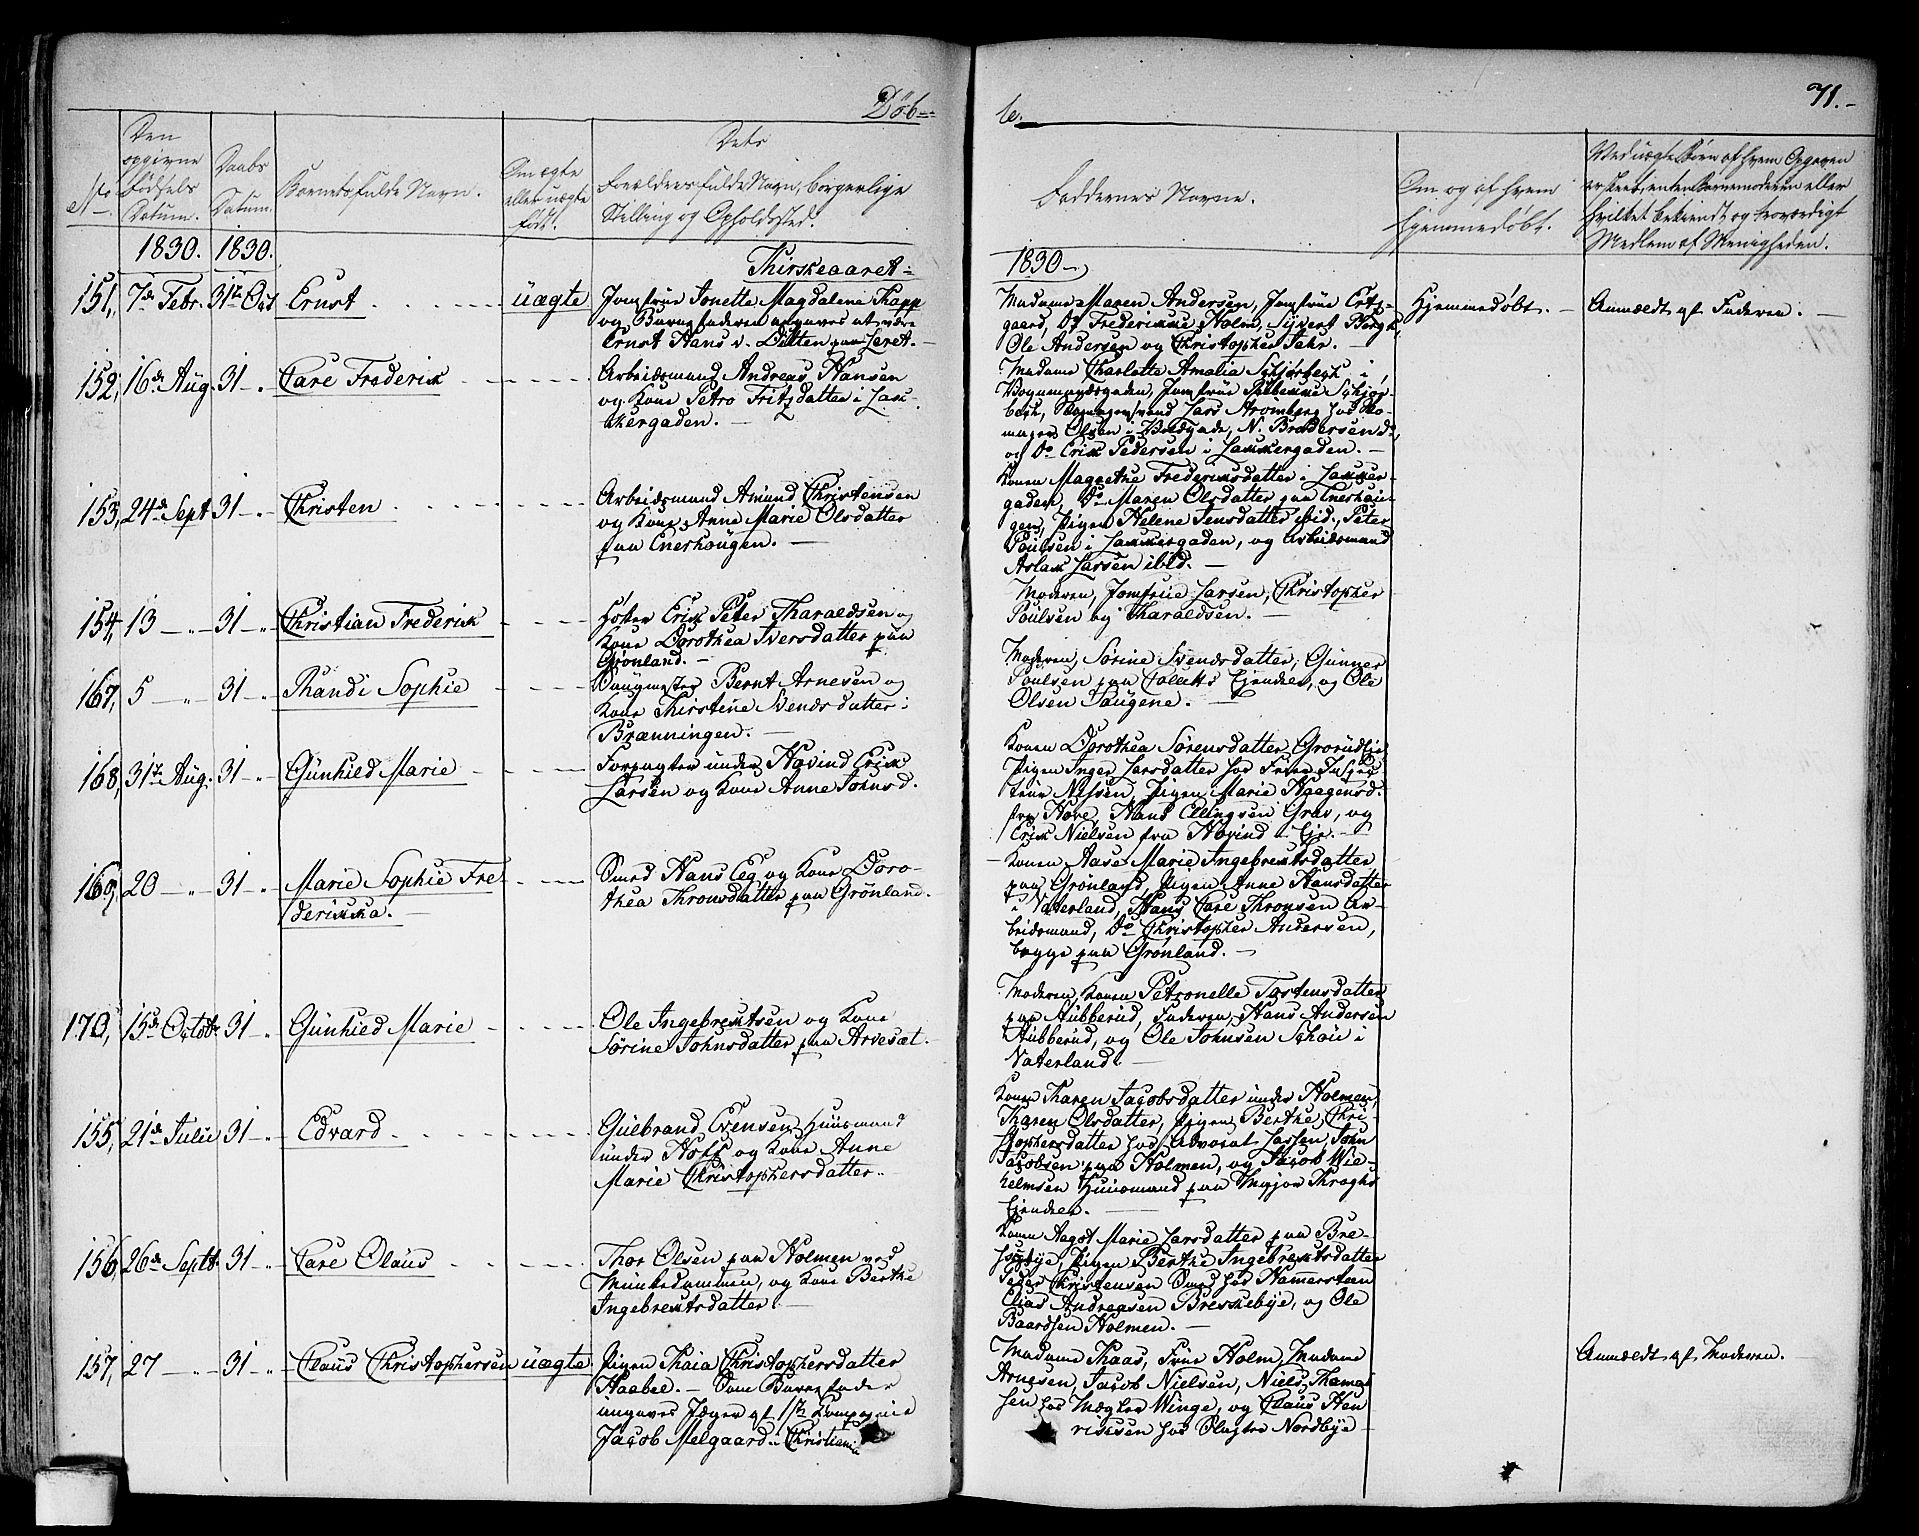 Døb-
be.
71.
No
Den opgivne Fødsels Datum.
Daabs Datum.
Barnets fulde Navn.
Om ægte eller uægte født.
Dets
Forældres fulde Navn, borgerlige
Stilling og Opholdssted.
Faddernes Navne.
Om og af hvem
hjemmedøbt.
Ved uægte Børn af hvem Opgaven
er skeet, enten Barnemoderen eller
hvilket bekiendt og troværdigt
Medlem af Menigheden.
1830. 1830.
1830
151, 7de Febr. 31te Oct Ernst uægte
Jomfrue Jonette Magdalena Rapp
og Barnefaderen angaves at være
Ernst Hans v. Ditten paa
Madame Maren Andersen, Jomfrue
gaard, Do Frederikke Holm, Syvert Bergh,
Ole Andersen og Christopher Fehr.
Hjemmedøbt.
Anmeldt af Faderen.
152, 16de Aug. 31 Carl Frederik
Arbeidsmand Andreas Hansen
og Kone Petro Fritzdatter i Lak-
kergaden.
Madame Charlotte Amalia Schjørbech i
Vognmandsgaden, Jomfrue Schjør-
bech, Lars Stromberg hos
mager Olsen i N. Brodersen do,
og Do Erik Pedersen i Lakkergaden.
153, 24de Sept 31 Christen
Arbeidsmand Amund Christensen
og Kone Anne Marie Olsdatter
paa Enerhougen.
Konen Magrethe Frederiksdatter i Lakker-
gaden, Do Maren Olsdatter paa Enerhou-
gen, Pigen Helene Jensdatter ibid., Peter
Poulsen i Lakkergaden, og Arbeidsmand
Aslak Larsen ibid.
154, 13 31 Christian Frederik
Erik Peter Tharaldsen og
Kone Dorothea Iversdatter paa
Grønland.
Moderen, Jomfrue Larsen, Christopher
Poulsen og Tharaldsen.
167, 5 31 Randi Sophie
Saugmester Bernt Arnesen og
Kone Kirstine Svendsdatter i
Brænningen.
Moderen, Sørine Svendsdatter, Gunner
Poulsen paa Colletts Eiendeel, og Ole
Olsen Saugene.
168, 31te Aug. 31 Gunhild Marie
Forpagter under Hovind Erik
Larsen og Kone Anne Johnsd.
Konen Dorothea Sørensdatter
Pigen Inger Larsdatter hos
Nissen, Pigen Marie Haagensd.
fra Hove, Hans Ellingsen Grav, og
Erik Nielsen fra Hovind Eje.
169, 20 31 Marie Sophie Fre
derikka.
Smed Hans Eeg og Kone Doro-
thea Thronsdatter paa Grønland.
Konen Aase Marie Ingebretsdatter
paa Grønland, Pigen Anne Hansdatter
i Vaterland, Hans Carl Thronsen Ar-
beidsmand, Do Christopher Andersen,
begge paa Grønland.
170, 15de Octobr 31 Gunhild Marie
Ole Ingebretsen og Kone
Sørine Johnsdatter paa Arvesæt.
Moderen, Konen Petronelle Tostensdatter
paa Hubberud, Faderen, Hans Andersen
Hubberud, og Ole Johnsen Schou i
Vaterland.
155, 21de Julii 31 Edvard
Gulbrand Evensen Huusmand
under Hoff og Kone Anne
Marie Christophersdatter.
Konen Karen Jacobsdatter under Holmen,
Karen Olsdatter, Pigen Berthe Chri-
stophersdatter hos Advocat Lassen, John
Jacobsen paa Holmen, og Jacob Wil-
helmsen Huusmand paa Major Kroghs
Eiendeel.
156, 26de Septbr 31 Carl Olaus
Thor Olsen paa Holmen ved
Munkedammen, og Kone Berthe
Ingebretsdatter.
Konen Aagot Marie Larsdatter paa
Pigen Berthe Ingebretsdatter
Peder Christensen Smed hos Hammersteen
Elias Andreasen Briskebye, og Ole
Baardsen Holmen.
157, 27 31 Claus Christophersen uægte
Pigen Kaia Christophersdatter
Haabel. Som Barnefader
angaves Jæger af 1ste Kompagnie
Jacob Melgaard i Christiania
Madame Kaas, Frue Holm, Madame
Arnesen, Jacob Nielsen, Niels
sen hos Mægler Winge, og Claus Hen
riksen hos Slagter Nordbye
Anmeldt af Moderen.